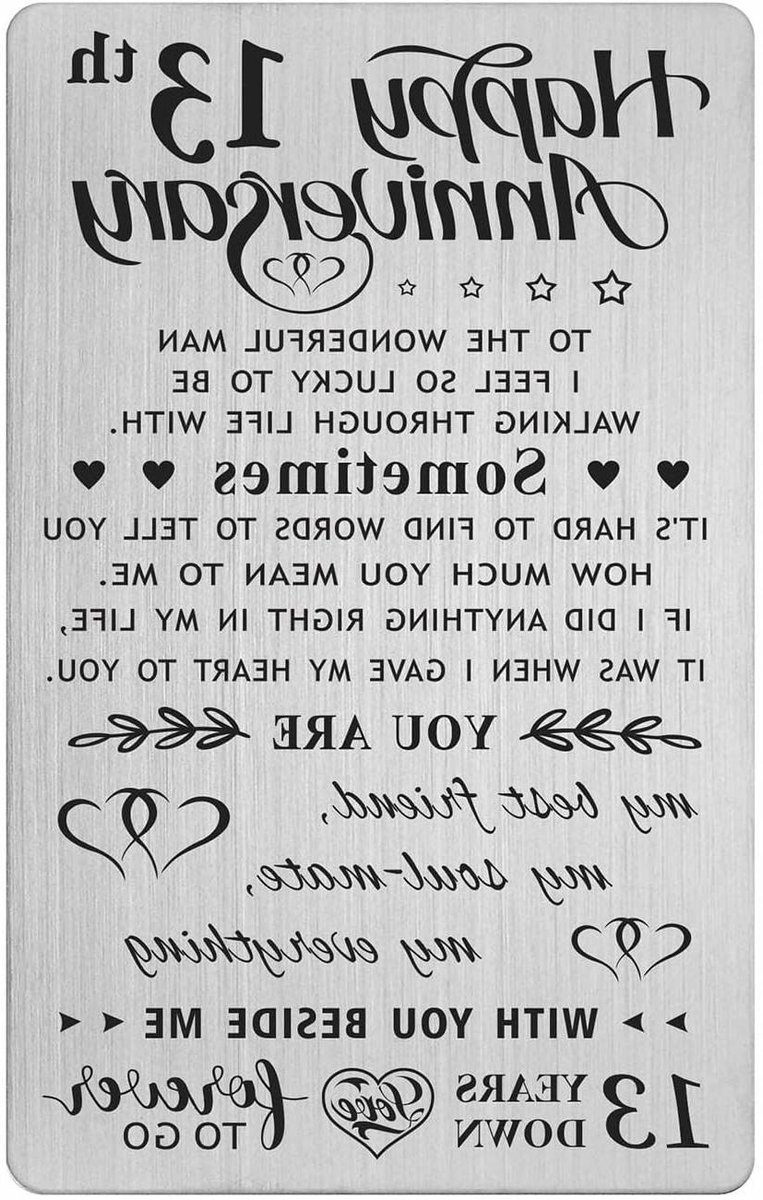 Happy 13th
Anniversary
TO THE WONDERFUL MAN
I FEEL SO LUCKY TO BE
WALKING THROUGH LIFE WITH.
Sometimes
IT'S HARD TO FIND WORDS TO TELL YOU
HOW MUCH YOU MEAN TO ME.
IF I DID ANYTHING RIGHT IN MY LIFE,
IT WAS WHEN I GAVE MY HEART TO YOU.
YOU ARE
my best friend,
my soul-mate,
my everything
WITH YOU BESIDE ME
13 YEARS DOWN
Love
forever TO GO